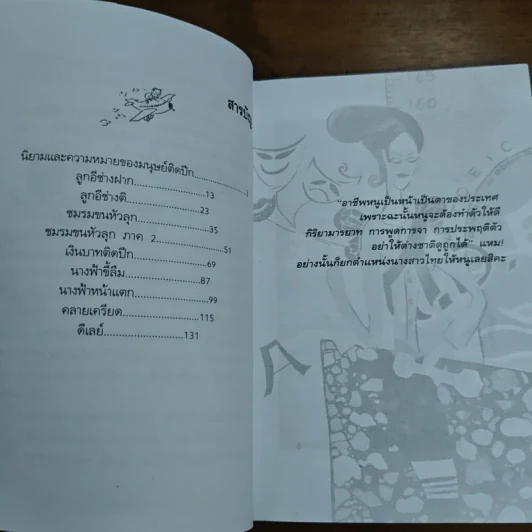 สารบัญ
นิยามและความหมายของมนุษย์ติดปีก...................1
ลูกอีช่างฝาก...............13
ลูกอีช่างติ...............23
ชมรมขนหัวลุก...............35
ชมรมขนหัวลุก ภาค 2...............51
เงินบาทติดปีก...............69
นางฟ้าขี้ลืม...............87
นางฟ้าหน้าแตก...............99
คลายเครียด...............115
ดีเลย์...............131
"อาชีพหนูเป็นหน้าเป็นตาของประเทศ
เพราะฉะนั้นหนูจะต้องทำตัวให้ดี
กิริยามารยาท การพูดการจา การประพฤติตัว
อย่าให้ต่างชาติดูถูกได้" แหม!
อย่างนั้นก็ยกตำแหน่งนางสาวไทยให้หนูเลยสิคะ
160
A